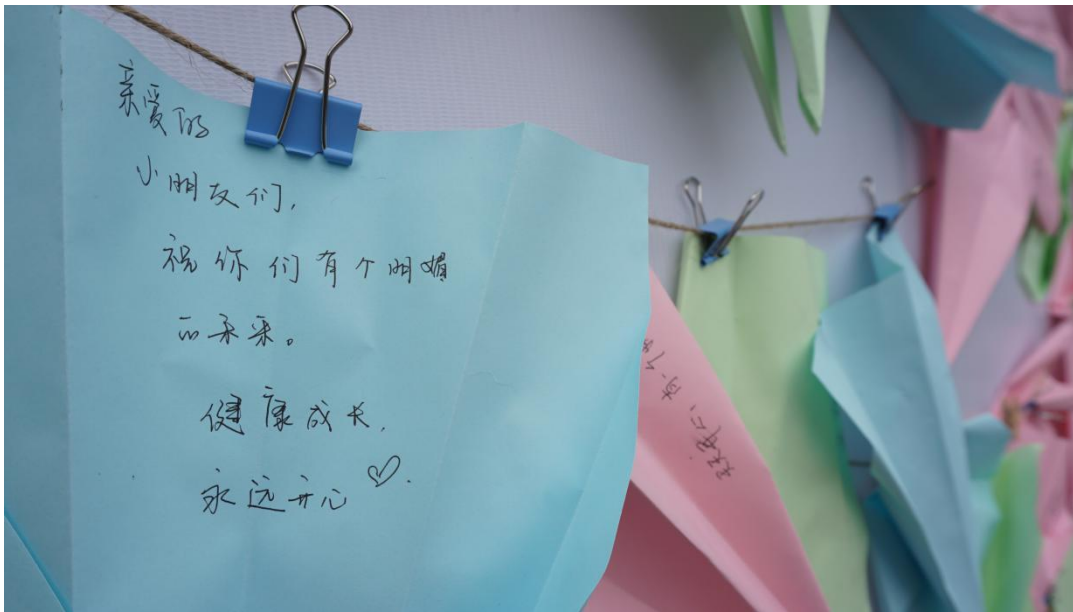 亲爱的
小朋友们,
祝你们有个明媚
的未来。
健康成长,
永远开心♡.